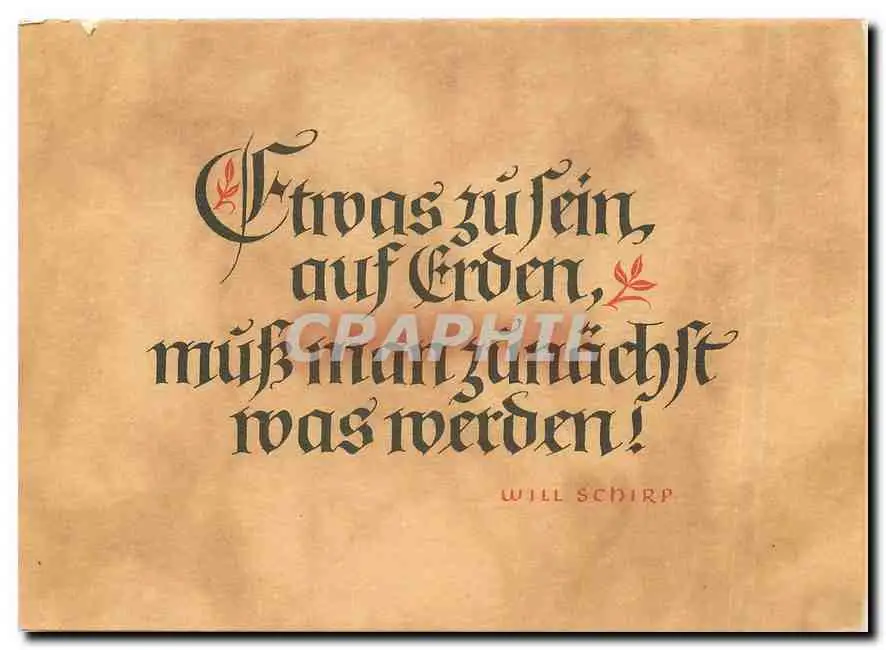 Etwas zu sein,
auf Erden,
muß man zunächst
was werden!
WILL SCHIRP
CPARHIL